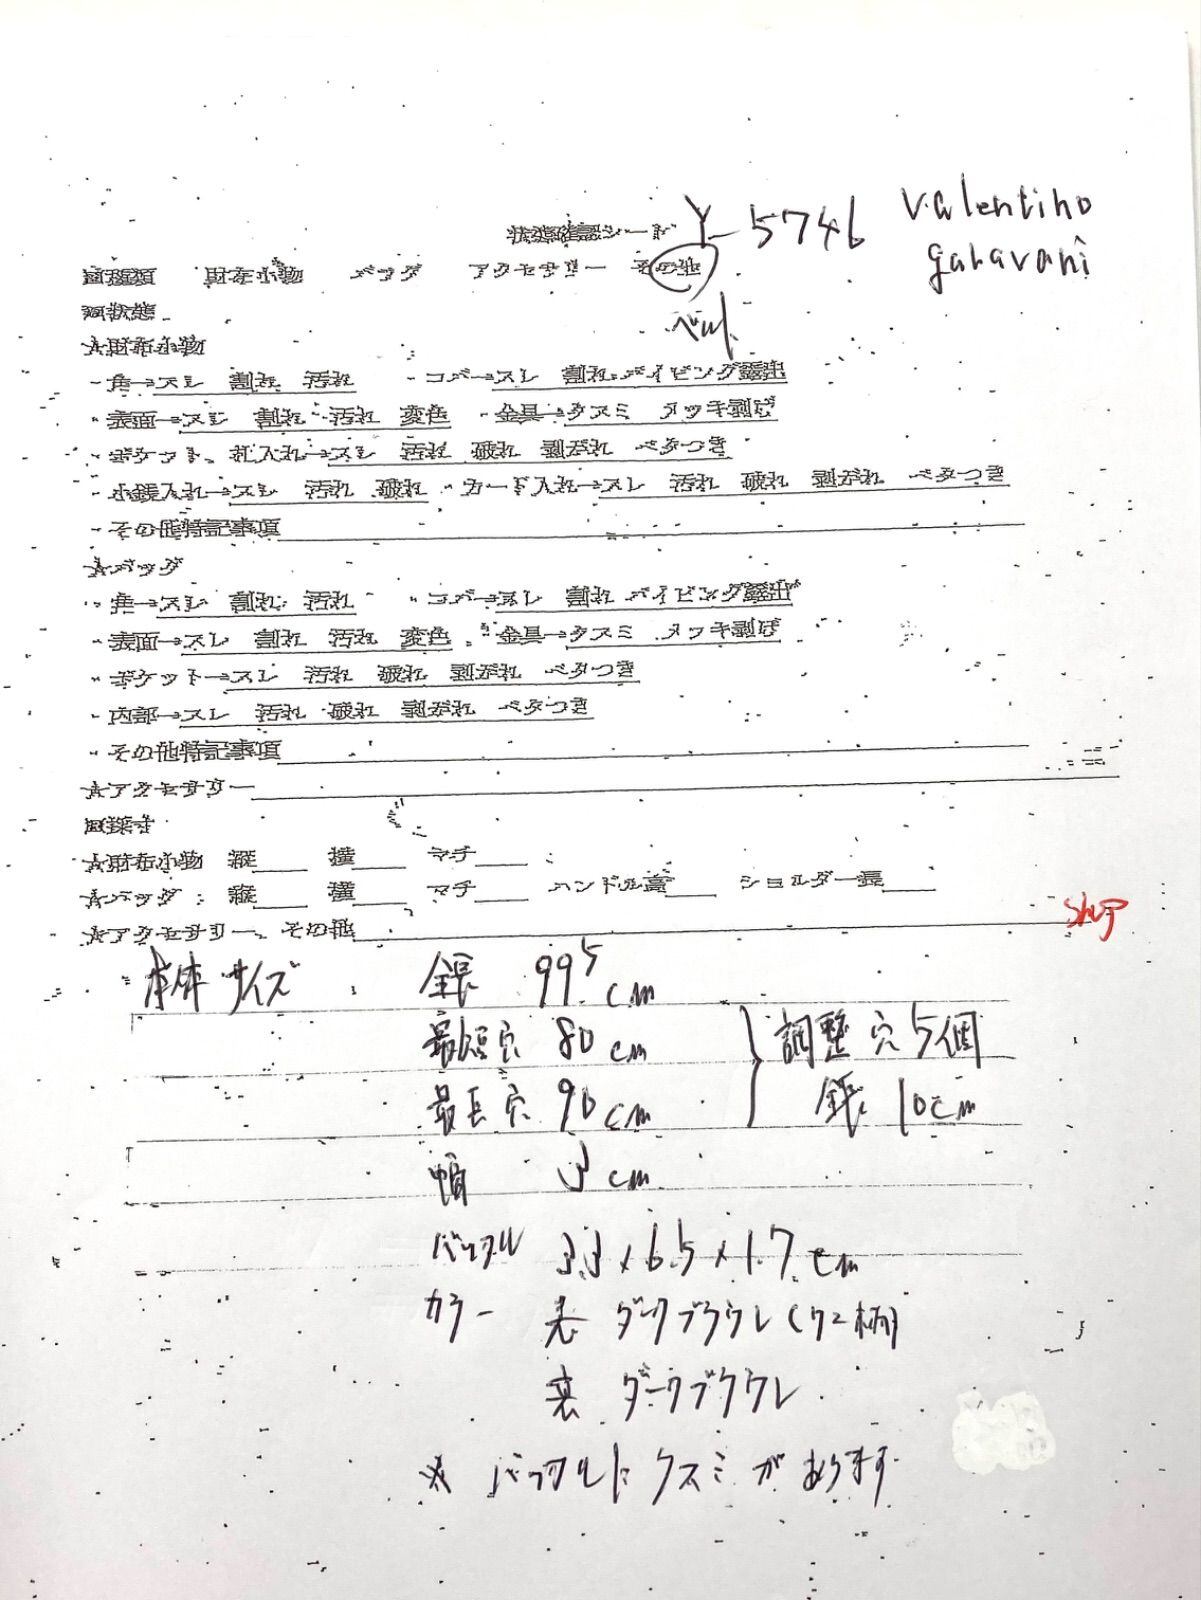 状態確認シート Y-5746 Valentino
garavani
□種類 財布小物 バッグ アクセサリー その他
ベルト
□状態
★財布小物
・角→スレ 割れ 汚れ ・コバ→スレ 割れ パイピング露出
・表面→スレ 割れ 汚れ 変色 ・金具→クスミ メッキ剥げ
・ポケット、札入れ→スレ 汚れ 破れ 剥がれ ベタつき
・小銭入れ→スレ 汚れ 破れ ・カード入れ→スレ 汚れ 破れ 剥がれ ベタつき
・その他特記事項
★バッグ
・角→スレ 割れ 汚れ ・コバ→スレ 割れ パイピング露出
・表面→スレ 割れ 汚れ 変色 ・金具→クスミ メッキ剥げ
・ポケット→スレ 汚れ 破れ 剥がれ ベタつき
・内部→スレ 汚れ 破れ 剥がれ ベタつき
・その他特記事項
★アクセサリー
□採寸
★財布小物 縦 横 マチ
★バッグ 縦 横 マチ ハンドル高 ショルダー長
★アクセサリー、その他
本体サイズ 全長 99.5cm
最短穴 80cm 調整穴5個
最長穴 90cm 全長 10cm
幅 3cm
バックル 3.3×6.5×1.7cm
カラー 表 ダークブラウン(ワニ柄)
裏 ダークブラウン
※ バックルにクスミがあります